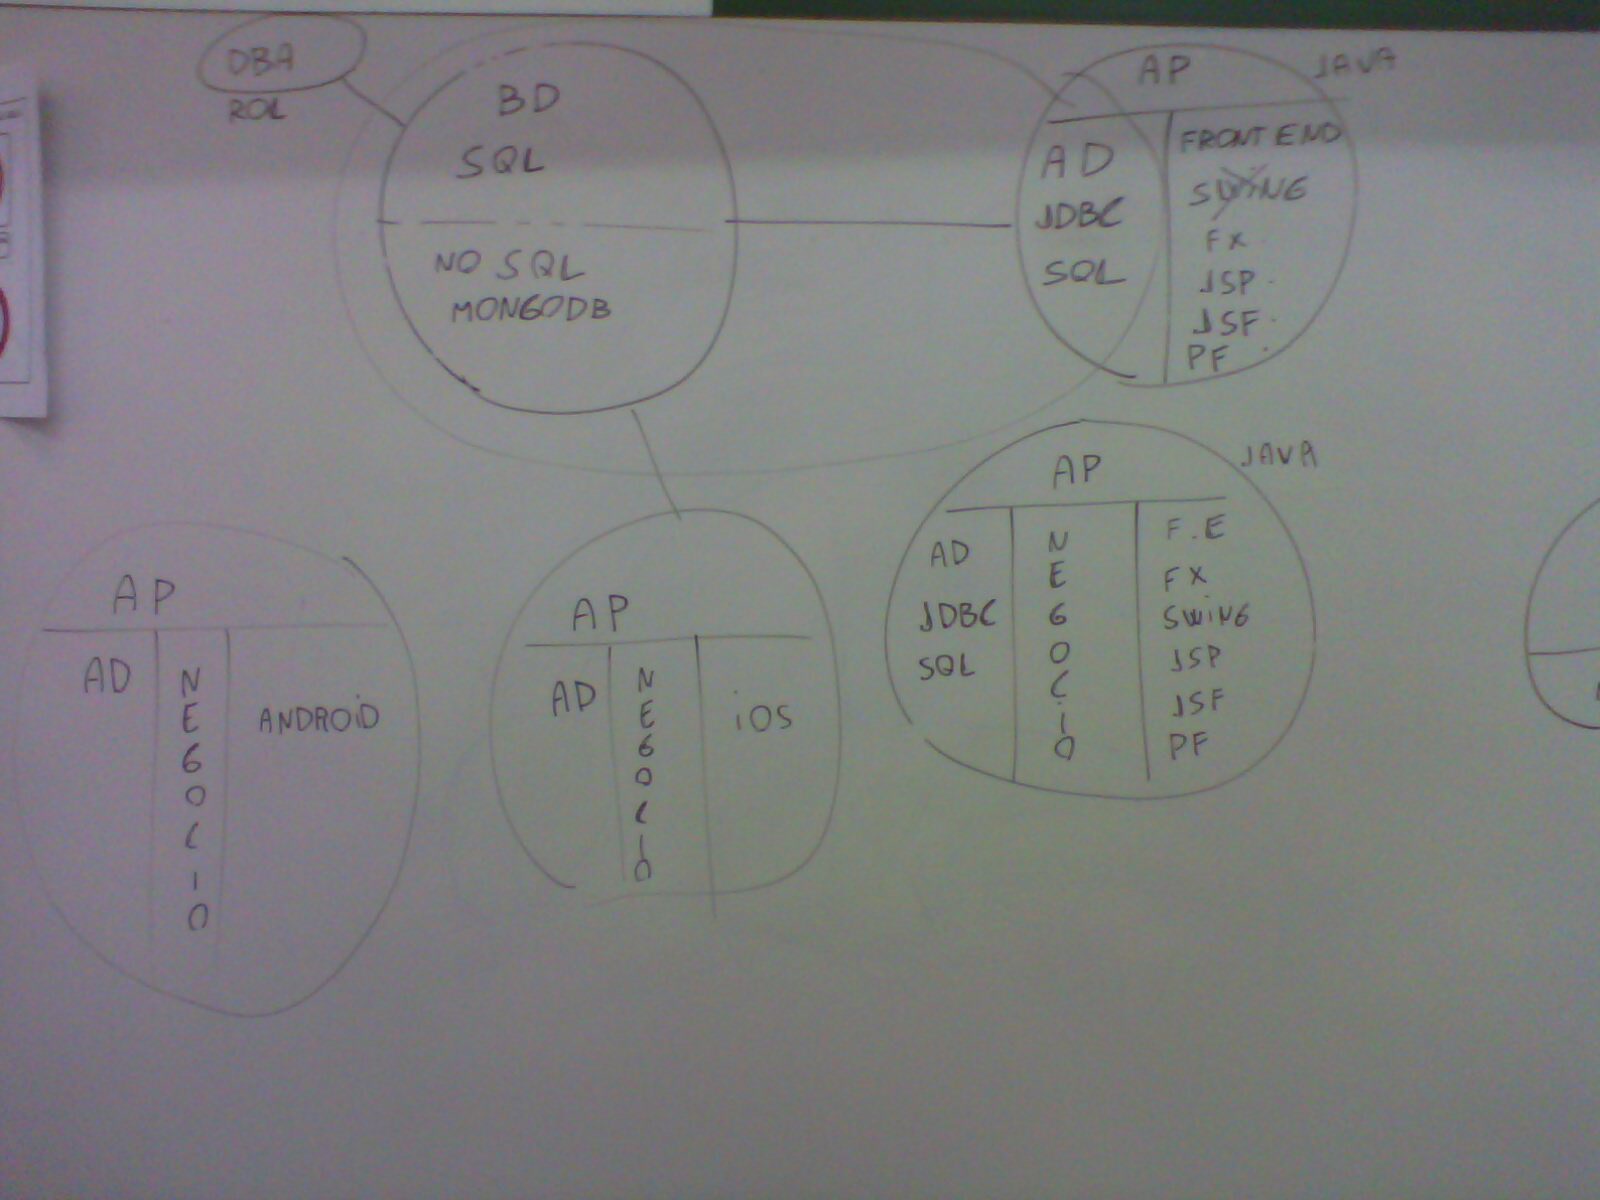 DBA
ROL
BD
SQL
NO SQL
MONGODB
AP
JAVA
AD
JDBC
SQL
FRONT END
SWING
FX
JSP
JSF
PF
AP
JAVA
AD
JDBC
SQL
NEGOCIO
F.E
FX
SWING
JSP
JSF
PF
AP
AD
NEGOCIO
ANDROID
AP
AD
NEGOCIO
iOS